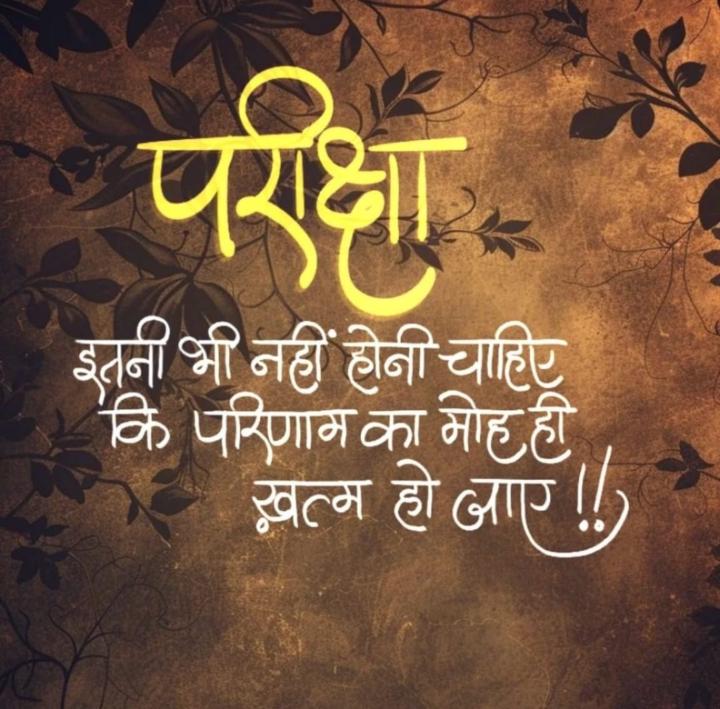 परीक्षा
इतनी भी नहीं होनी चाहिए
कि परिणाम का मोह ही
ख़त्म हो जाए !!